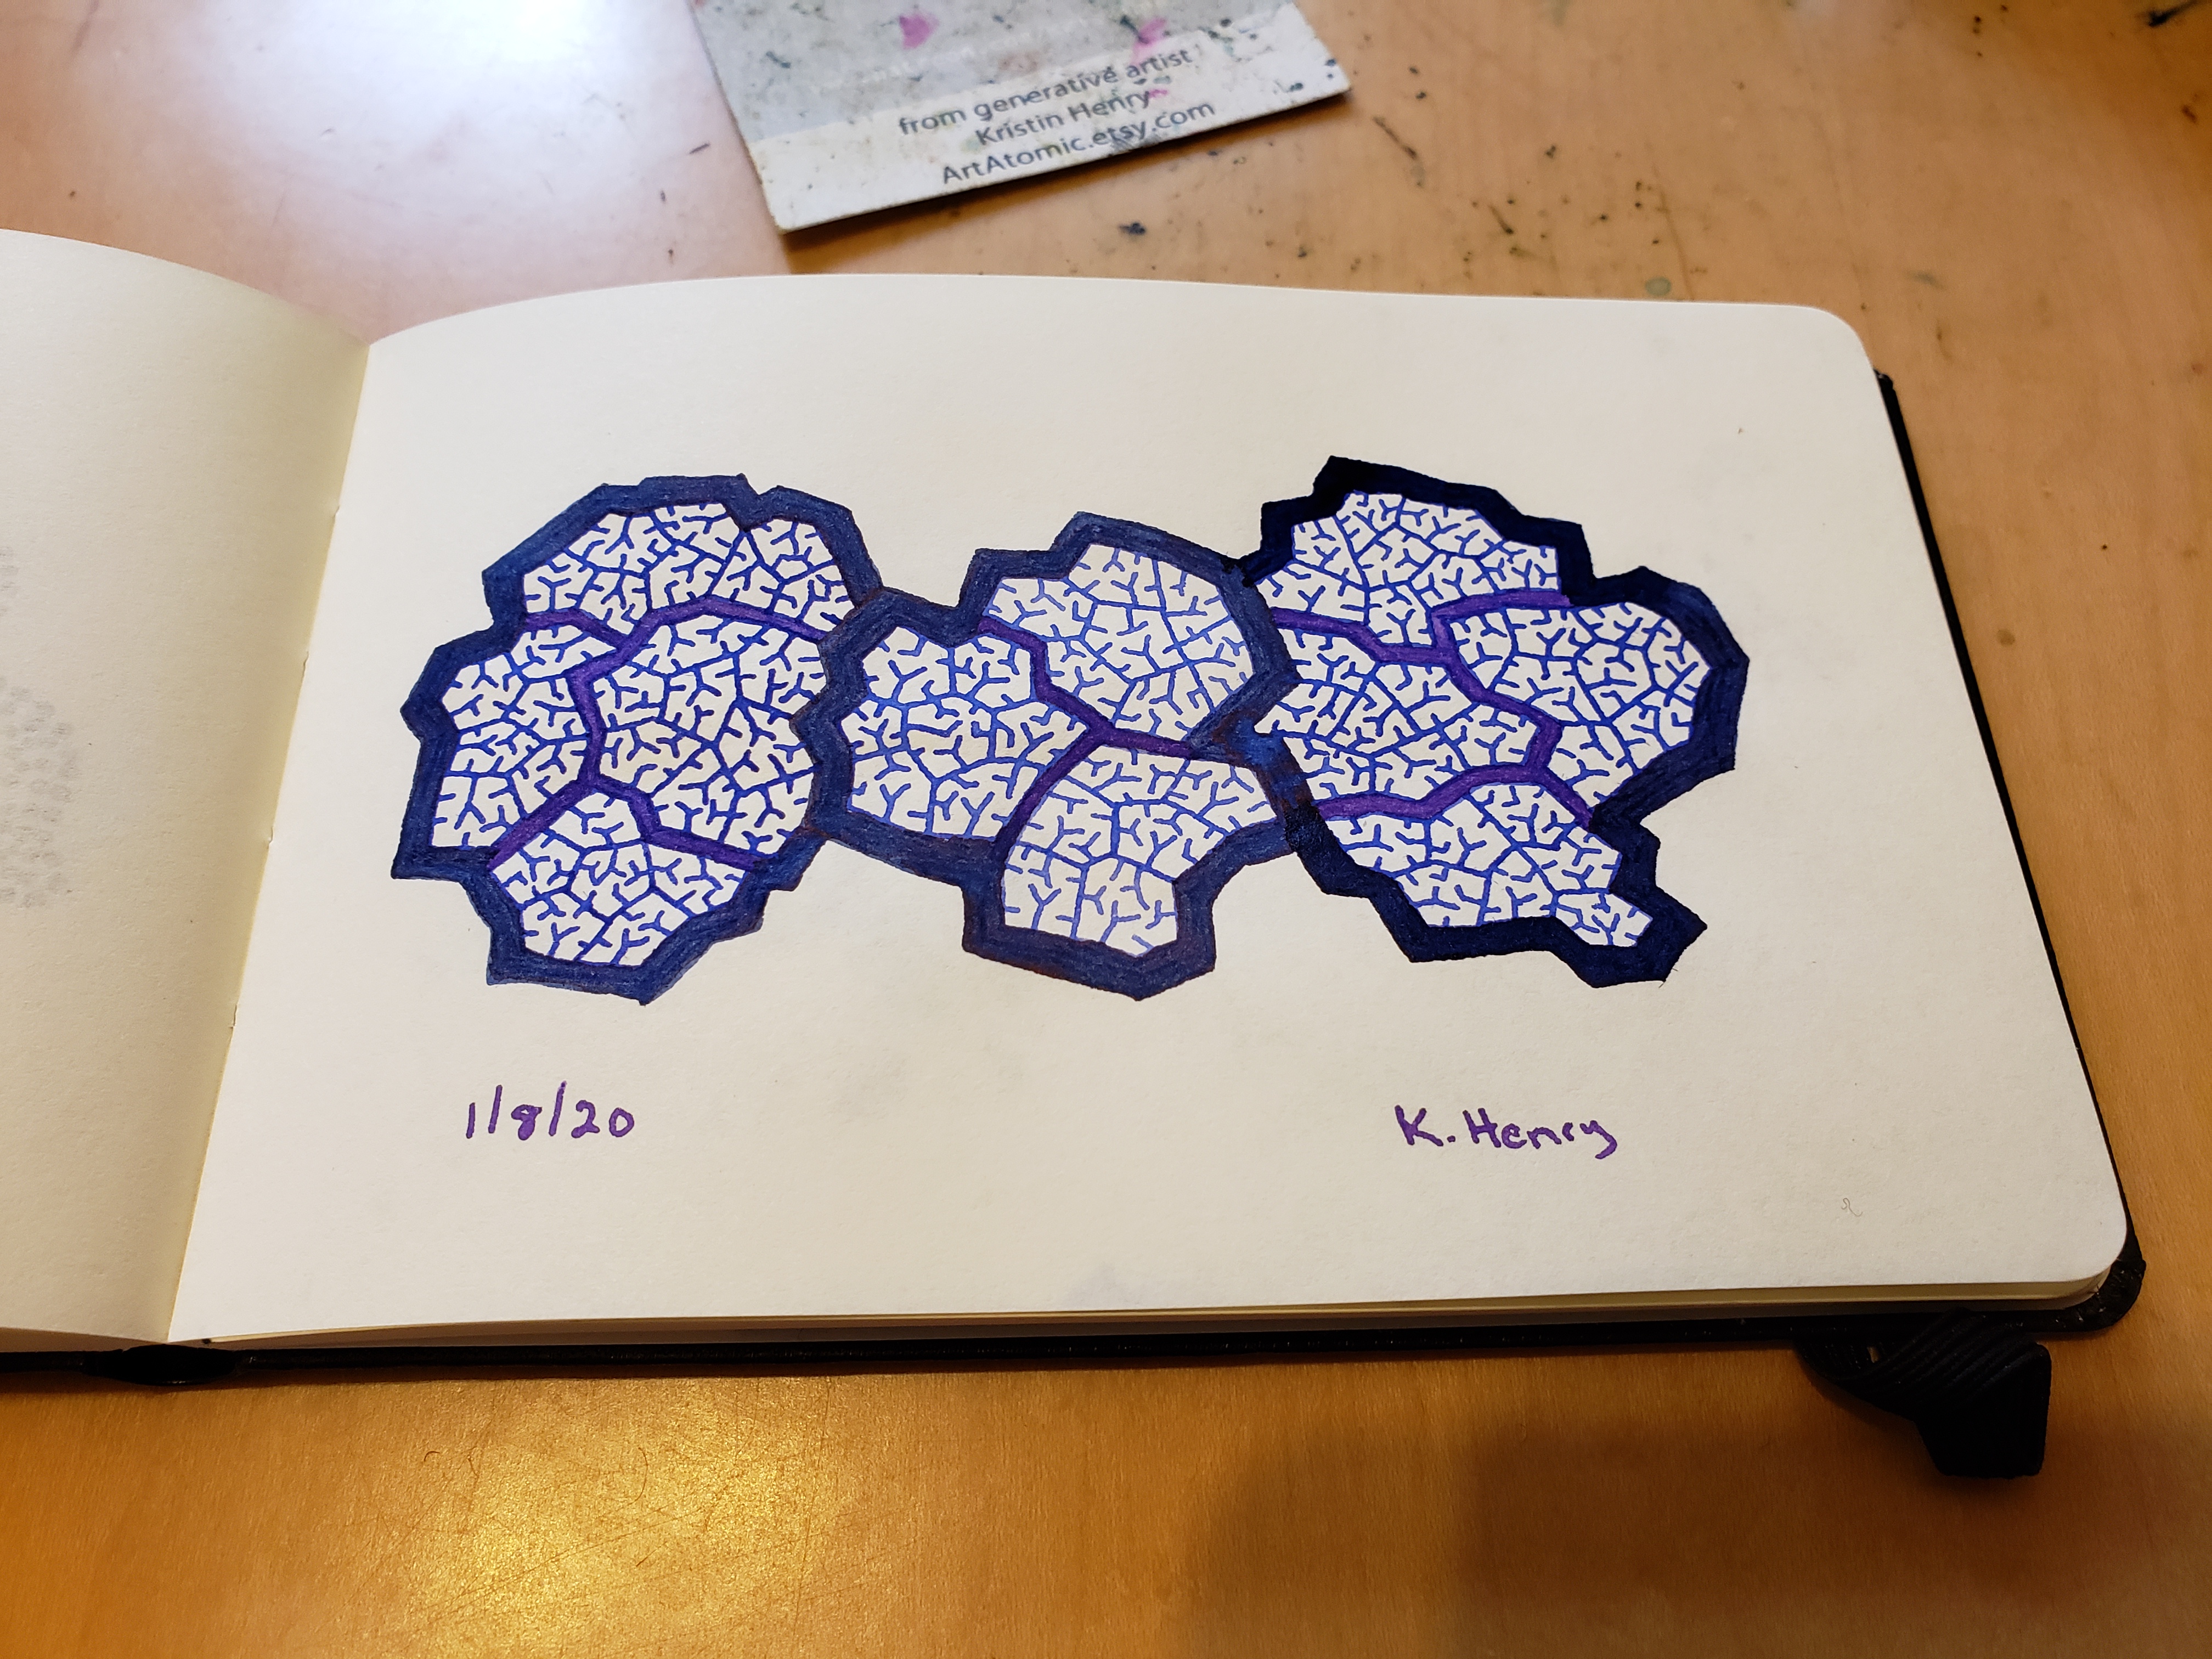 from generative artist
Kristin Henry
ArtAtomic.etsy.com
1/8/20
K. Henry